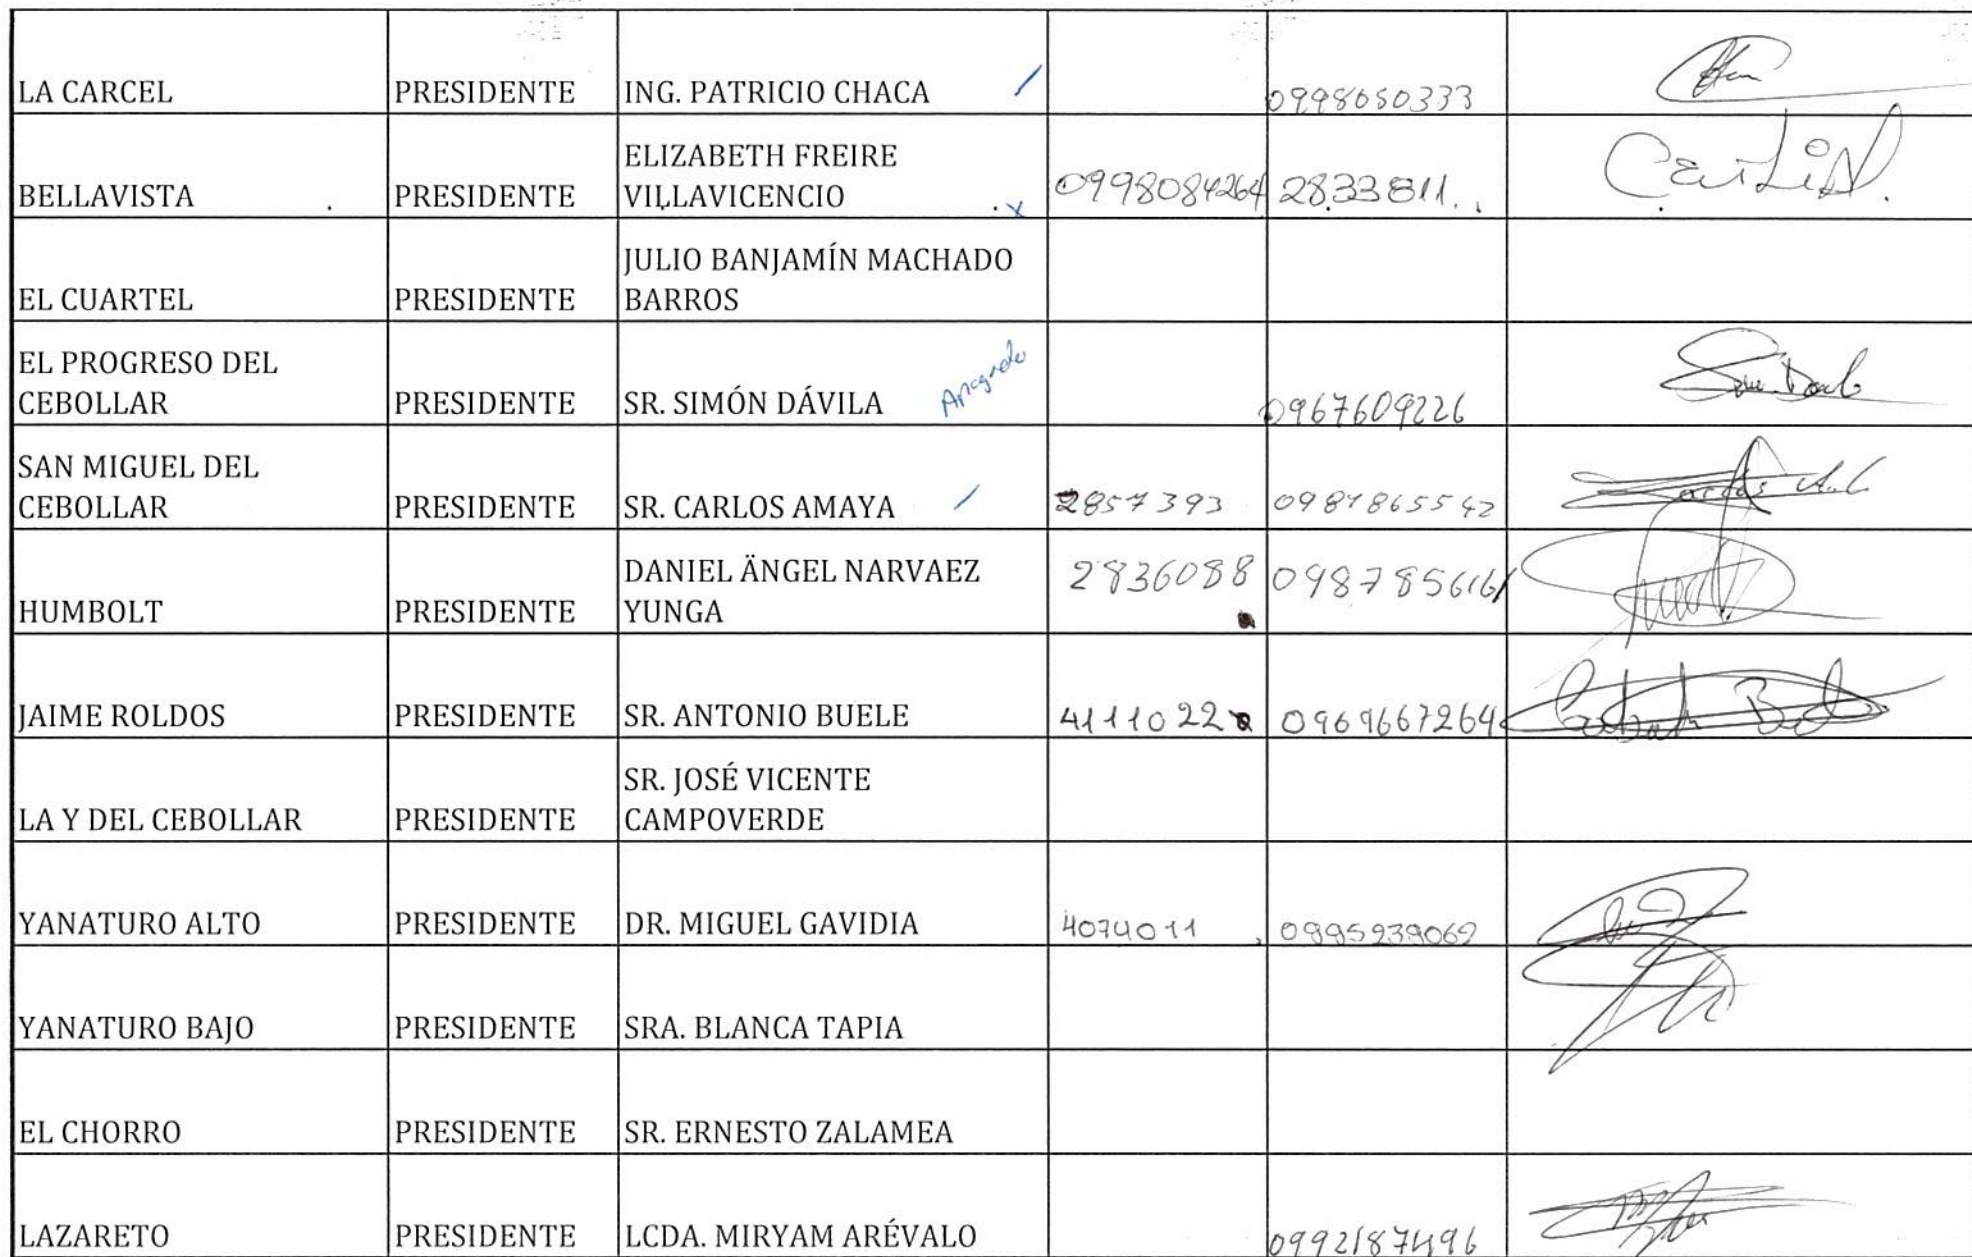 LA CARCEL PRESIDENTE ING. PATRICIO CHACA 0998050333
BELLAVISTA PRESIDENTE ELIZABETH FREIRE
VILLAVICENCIO 0998084264 2833811
EL CUARTEL PRESIDENTE JULIO BANJAMÍN MACHADO
BARROS
EL PROGRESO DEL
CEBOLLAR PRESIDENTE SR. SIMÓN DÁVILA 0967609226
SAN MIGUEL DEL
CEBOLLAR PRESIDENTE SR. CARLOS AMAYA 2857393
HUMBOLT PRESIDENTE DANIEL ÄNGEL NARVAEZ
YUNGA 2836088 0987856161
JAIME ROLDOS PRESIDENTE SR. ANTONIO BUELE 4111022 0969667264
LA Y DEL CEBOLLAR PRESIDENTE SR. JOSÉ VICENTE
CAMPOVERDE
YANATURO ALTO PRESIDENTE DR. MIGUEL GAVIDIA 4074011 0995239062
YANATURO BAJO PRESIDENTE SRA. BLANCA TAPIA
EL CHORRO PRESIDENTE SR. ERNESTO ZALAMEA
LAZARETO PRESIDENTE LCDA. MIRYAM ARÉVALO 0992187496